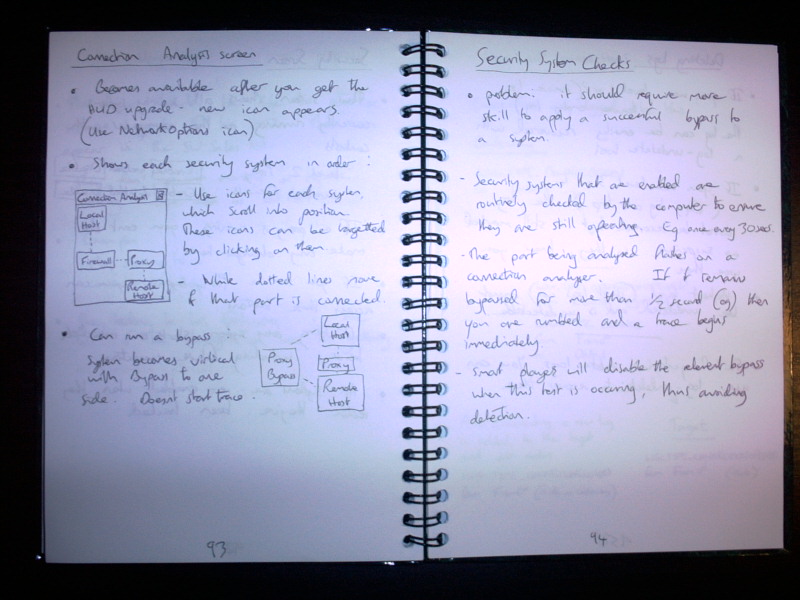 Connection Analysis screen
• Becomes available after you get the
HUD upgrade - new icon appears.
(Use Network Options icon)
• Shows each security system in order:
Connection Analysis
Local
Host
Firewall
Proxy
Remote
Host
- Use icons for each system,
which scroll into position.
These icons can be targetted
by clicking on them
- While dotted lines move
if that part is connected.
• Can run a bypass:
System becomes virtical
with Bypass to one
side. Doesnt start trace.
Local
Host
Proxy
Bypass
Proxy
Remote
Host
93
Security System Checks
• problem: it should require more
skill to apply a successful bypass to
a system.
- Security systems that are enabled are
routinely checked by the computer to ensure
they are still operating. Eg once every 30 secs.
- The part being analysed flashes on a
connection analyser. If it remains
bypassed for more than 1/2 second (eg) then
you are rumbled and a trace begins
immediately.
- Smart players will disable the relevant bypass
when this test is occuring, thus avoiding
detection.
94